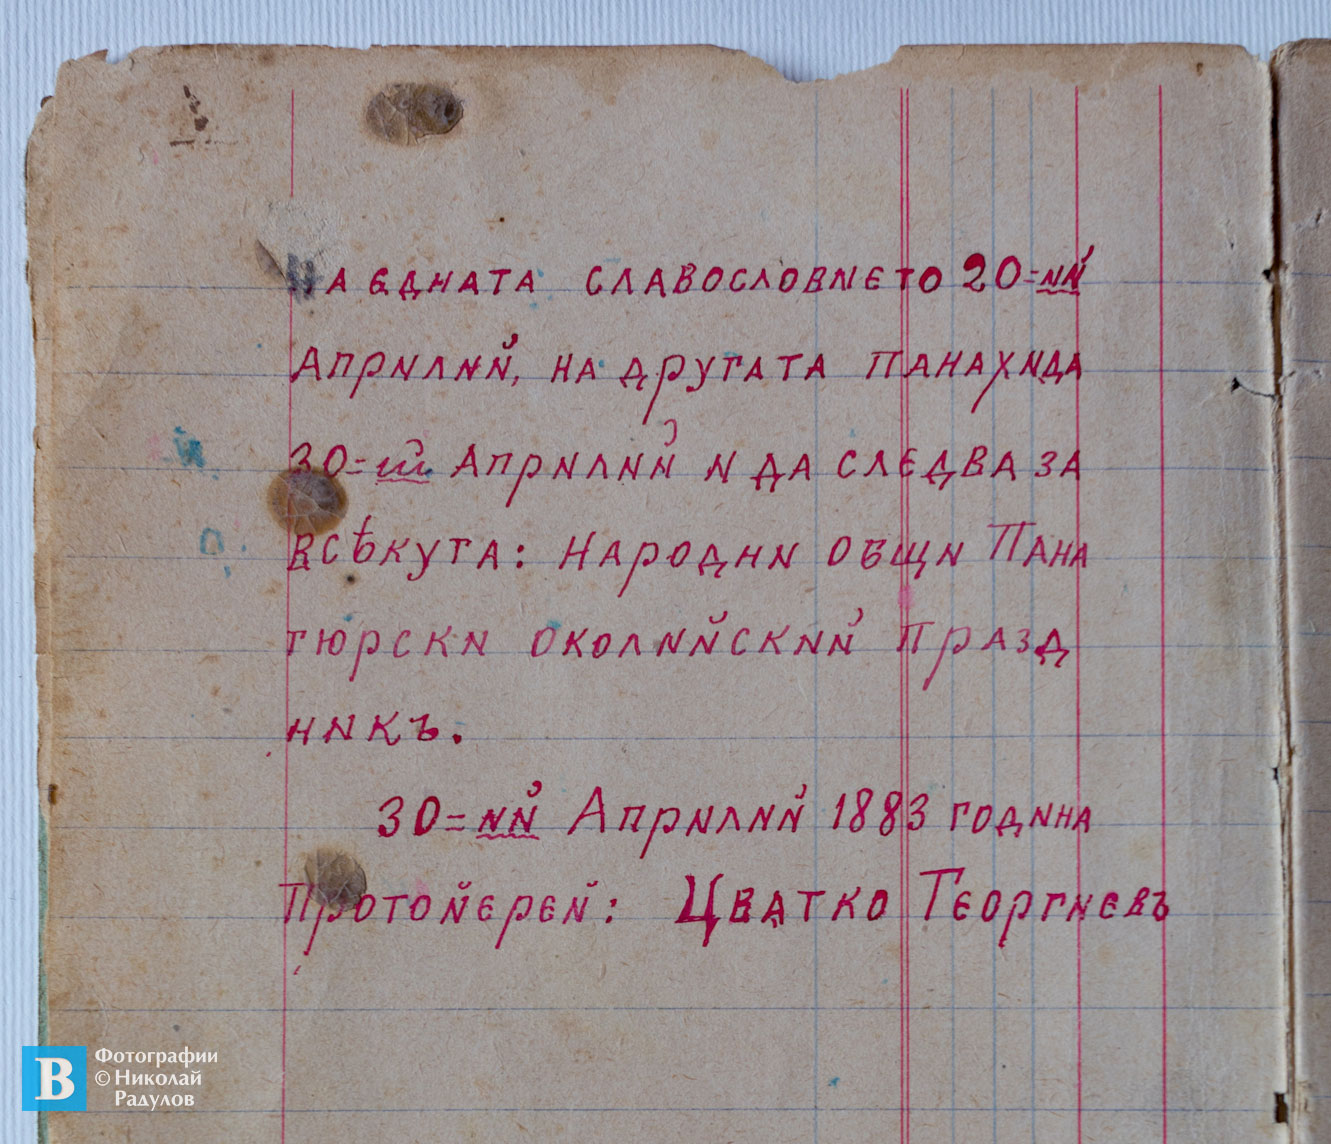 На едната славословието 20=ий
Априлий, на другата панахида
30=ий Априлий и да следва за
всѣкуга: Народни общи Пана
гюрски околийский празд
никъ.
30=ий Априлий 1883 година
Протойерей: Цватко Георгиевъ
В
Фотографии
© Николай
Радулов